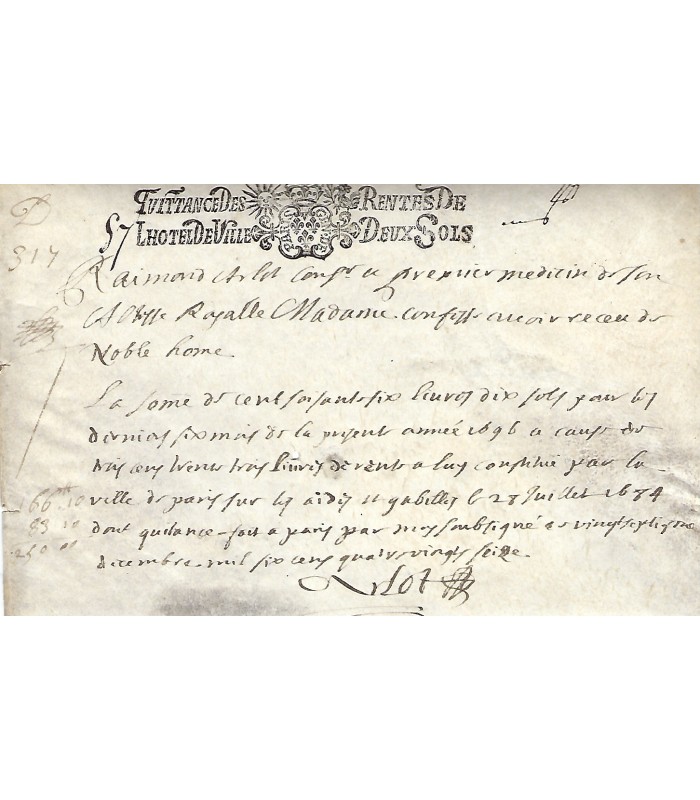 QUITTANCE DES RENTES DE
57 LHOTEL DE VILLE DEUX SOLS
PARIS
D
517
Raimond Arlot Consr et premier medecin de Son
Altesse Royalle Madame confesse avoir receu de
Noble home
La some de cent soisante six livres dix sols pour les
derniers six mois de la presente année 1696 a cause de
trois cens trente trois livres de rente a luy constitué par la
ville de paris sur les aides et gabelles le 28 Juillet 1684
dont quitance fait a paris par moy soubsigné ce vingt septiesme
decembre mil six cens quatre vingts seize
Arlot
166 10
83 10
250 00